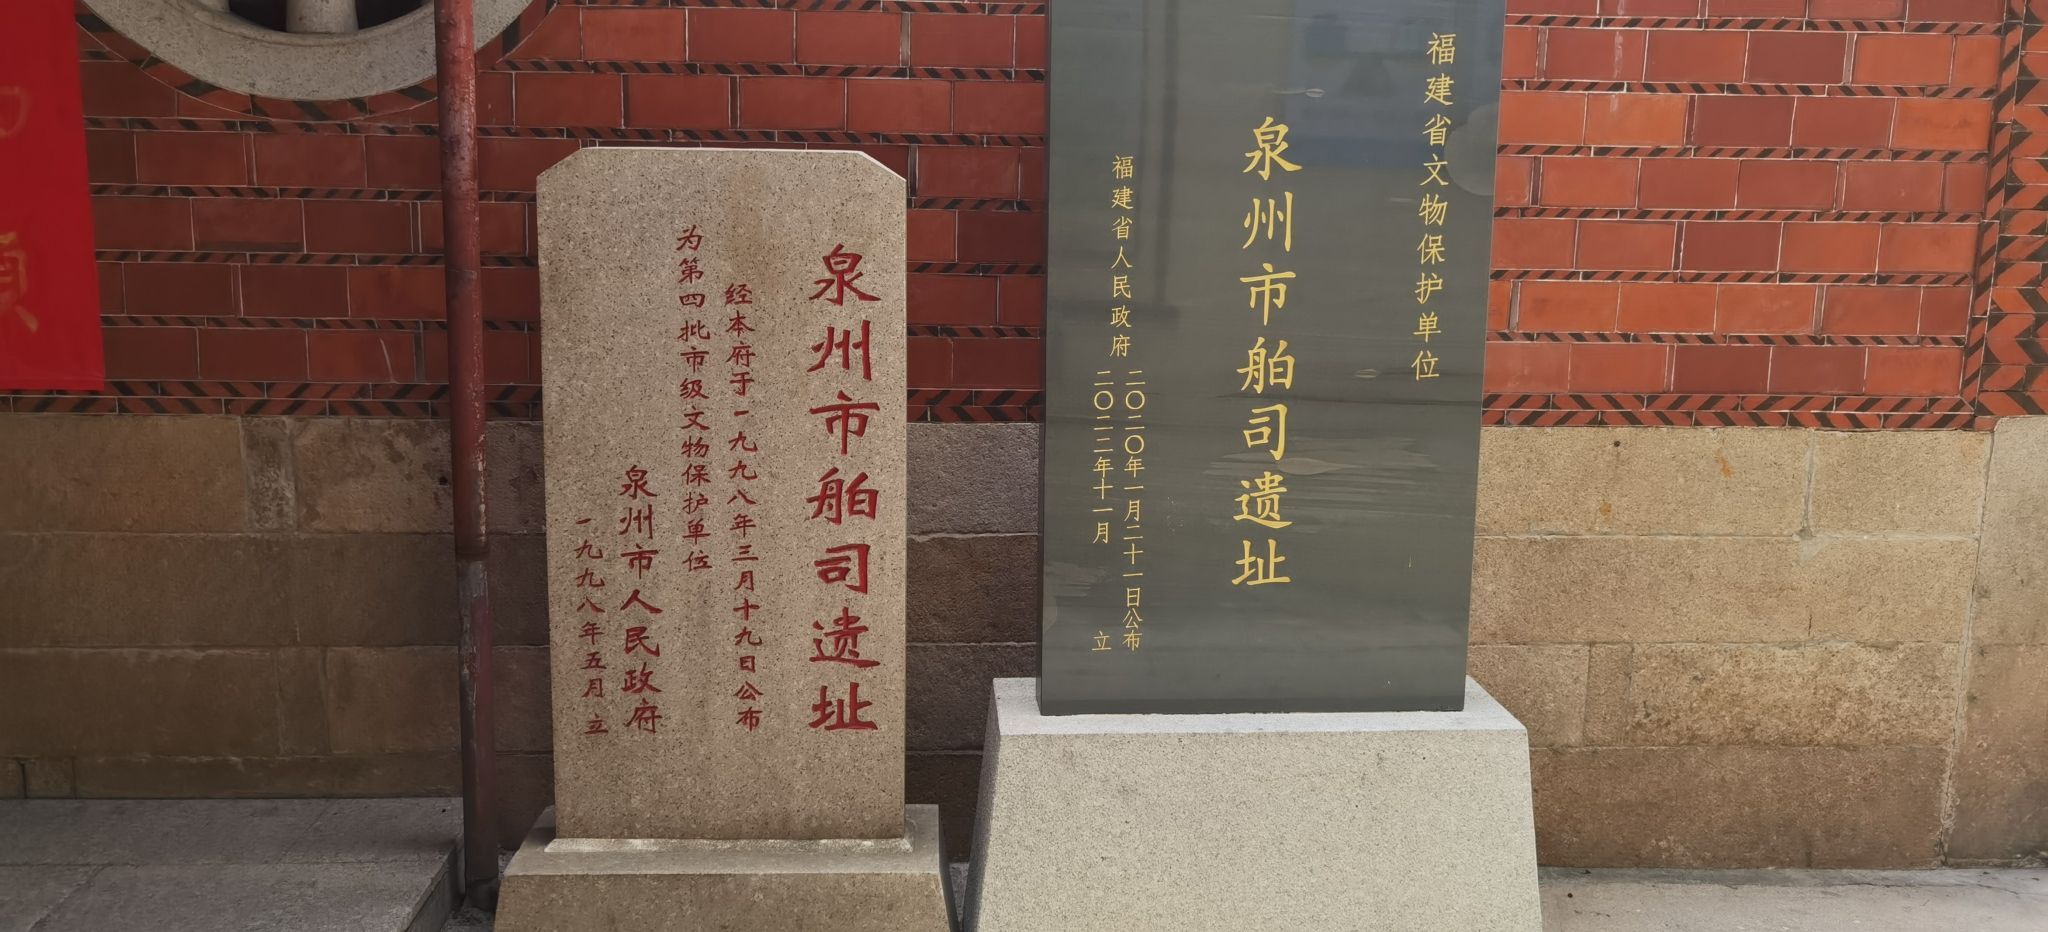 泉州市舶司遗址
经本府于一九九八年三月十九日公布
为第四批市级文物保护单位
泉州市人民政府
一九九八年五月 立
福建省文物保护单位
泉州市舶司遗址
福建省人民政府
二〇二〇年一月二十一日公布
二〇二二年十一月 立